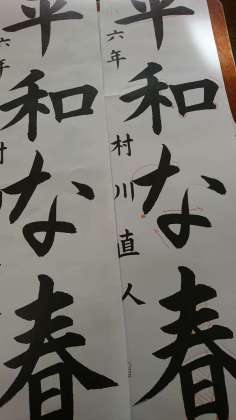 平和な春
六年 村川直人
平和な春
六年 村